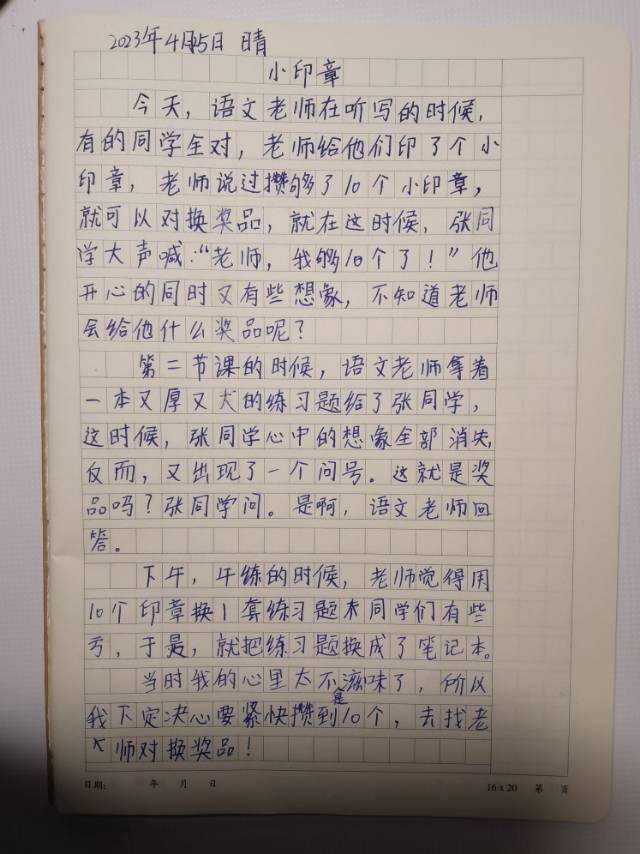 2023年4月25日 晴
小印章
今天，语文老师在听写的时候，
有的同学全对，老师给他们印了个小
印章，老师说过攒够了10个小印章，
就可以对换奖品，就在这时候，张同
学大声喊：“老师，我够10个了！”他
开心的同时又有些想象，不知道老师
会给他什么奖品呢？
第二节课的时候，语文老师拿着
一本又厚又大的练习题给了张同学，
这时候，张同学心中的想象全部消失，
反而，又出现了一个问号。这就是奖
品吗？张同学问。是啊，语文老师回
答。
下午，午练的时候，老师觉得用
10个印章换1套练习题本同学们有些
亏，于是，就把练习题换成了笔记本。
当时我的心里太不是滋味了，所以
我下定决心要紧快攒到10个，去找老
师对换奖品！
日期： 年 月 日
16 x 20 第 页